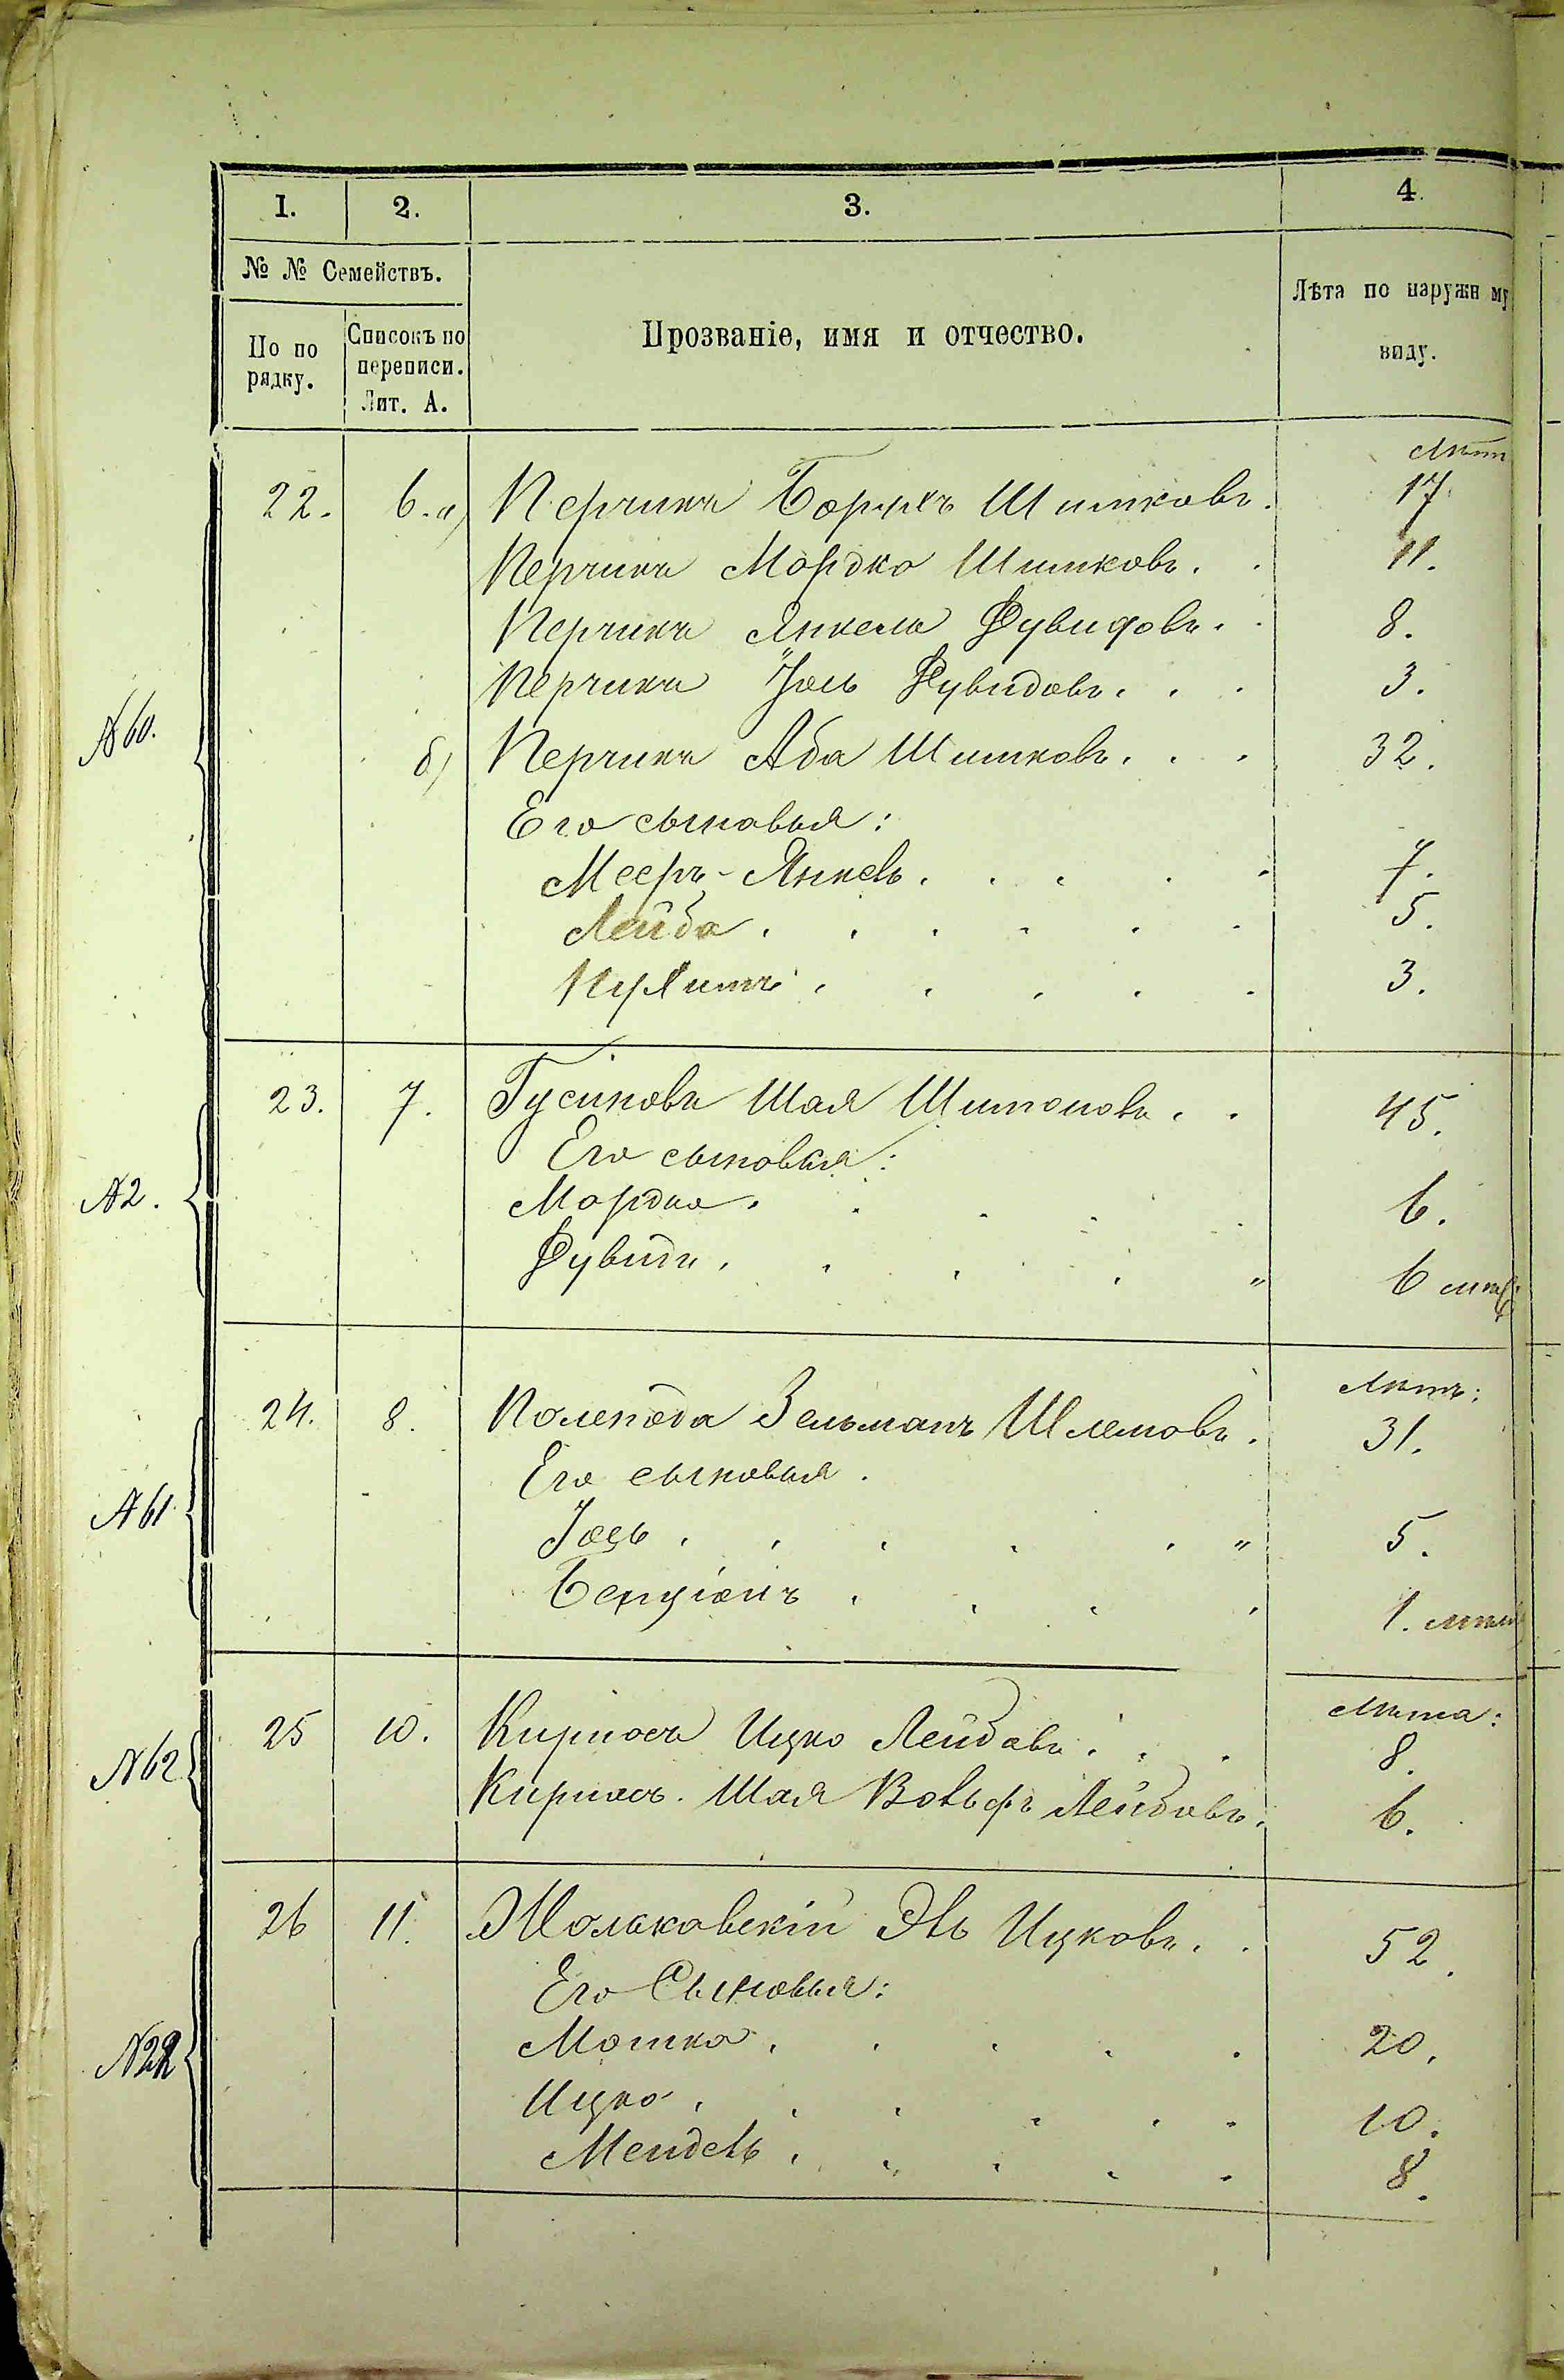 1. 2. 3. 4
№ № Семействъ.
По по рядку.
Списокъ по переписи. Лит. А.
Прозваніе, имя и отчество.
Лѣта по наружн му виду.
Лѣтъ
22. 6. а) Перчикъ Борухъ Шимковъ. 17.
Перчикъ Мордко Шимковъ. 11.
Перчикъ Янкель Дувидовъ. 8.
Перчикъ Іось Дувидовъ. 3.
№ 60.
б) Перчикъ Аба Шимковъ. 32.
Его сыновья:
Мееръ-Янкель. 7.
Лейба. 5.
3.
23. 7. Гусиковъ Шая Шимоновъ. 45.
Его сыновья:
№ 2. Мордко. 6.
Дувидъ. 6 мѣс.
Лѣтъ:
24. 8. Зельманъ Шлемовъ. 31.
Его сыновья.
№ 61. Іось. " 5.
Бенціонъ. 1.
Лѣта:
25 10. Кирносъ Ицко Лейбовъ. 8.
№ 62 Кирносъ. Шая Вольфъ Лейбовъ. 6.
26 11. Эль Ицковъ. 52.
Его Сыновья:
№ 22 Мошко. 20.
Ицко. 10.
Мендель. 8.